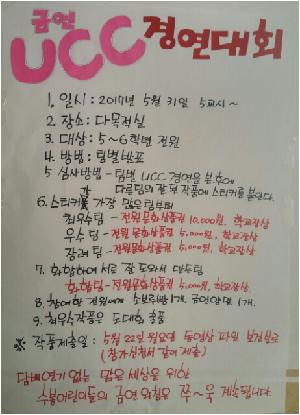 금연
UCC 경연대회
1. 일시 : 2017년 5월 31일 5교시~
2. 장소 : 다목적실
3. 대상 : 5~6학년 전원
4. 방법 : 팀별발표
5. 심사방법 - 팀별 UCC 경연을 본후에
각 다른팀의 잘 된 작품에 스티커를 붙인다.
6. 스티커를 가장 많은팀부터
최우수팀 - 전원 문화상품권 10,000원, 학교장상
우수 팀 - 전원 문화상품권 5,000원, 학교장상
장려 팀 - 전원문화상품권 5,000원, 학교장상
7. 화합하여 서로 잘 도와서 만든팀
화합팀 - 전원문화상품권 5,000원, 학교장상
8. 참여한 전원에게 소보로빵 1개, 금연양말 1개.
9. 최우수작품은 도대회 출품
※ 작품제출일 : 5월 22일 월요일 동영상 파일 보건실로
(참가신청서 같이 제출)
담배연기 없는 맑은 세상을 위한
수봉어린이들의 금연 외침은 쭈~욱 계속됩니다.